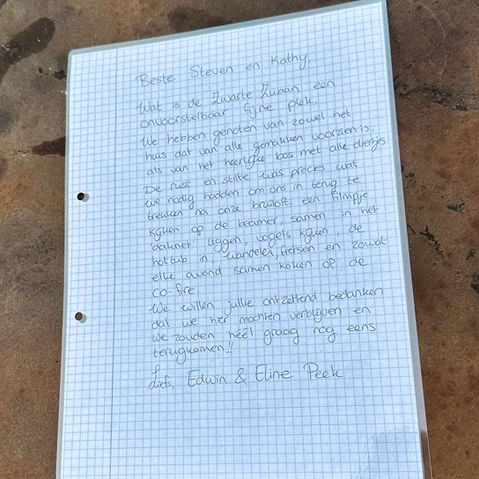 Beste Steven en Kathy,
Wat is de Zwarte Zwaan een
onvoorstelbaar fijne plek.
We hebben genoten van zowel het
huis dat van alle gemakken voorzien is,
als van het heerlijke bos met alle diertjes
De rust en stilte was precies wat
we nodig hadden om ons in terug te
trekken na onze bruiloft: een filmpje
kijken op de beamer, samen in het
'daknet' liggen, vogels kijken, de
hottub in, wandelen, fietsen en zowat
elke avond samen koken op de
co-fire.
We willen jullie ontzettend bedanken
dat we hier mochten verblijven en
we zouden héél graag nog eens
terugkomen!!
Liefs, Edwin & Eline Peek